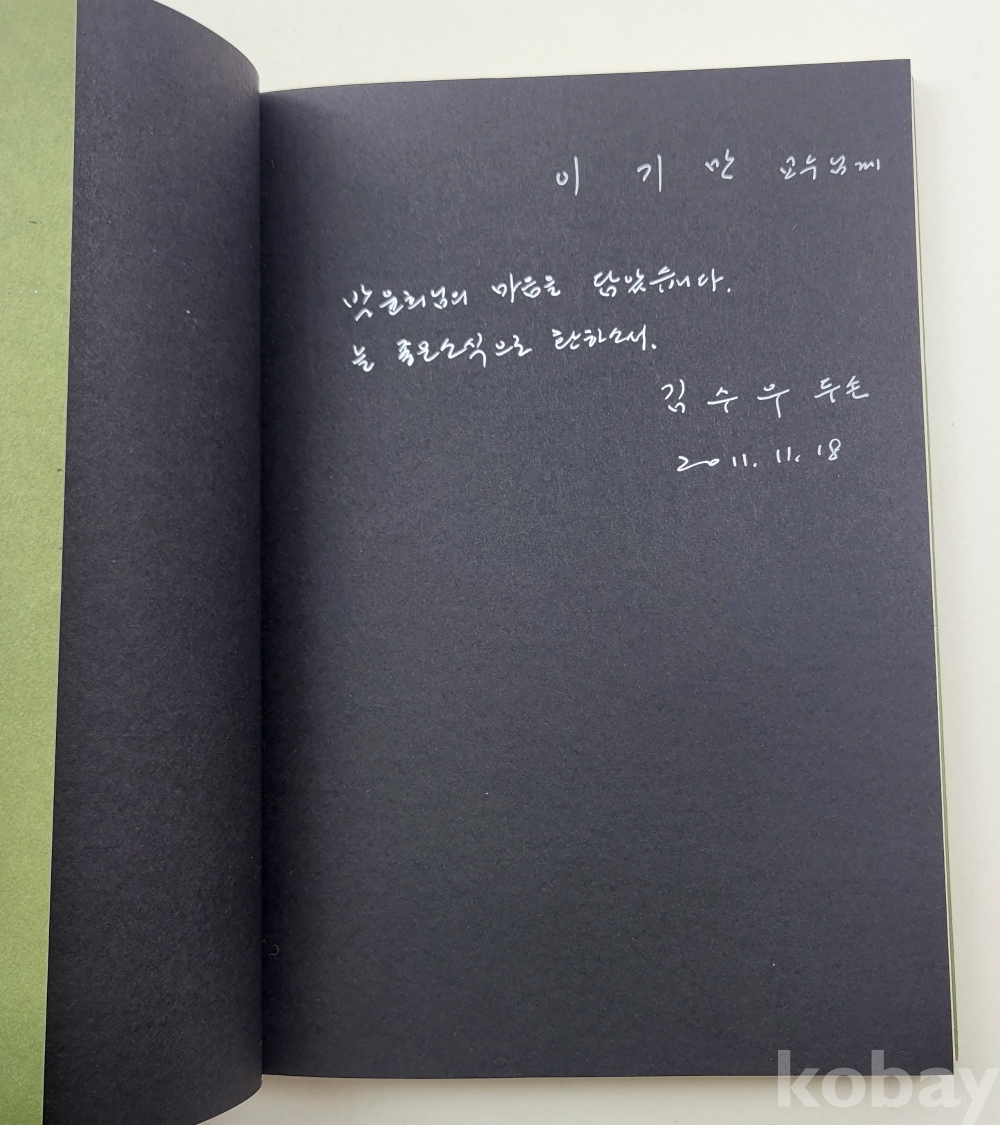 이 기 만 교수님께
박윤희님의 마음을 닮았습니다.
늘 좋은소식으로 환하소서.
김 수 우 두손
2011. 11. 18
kobay